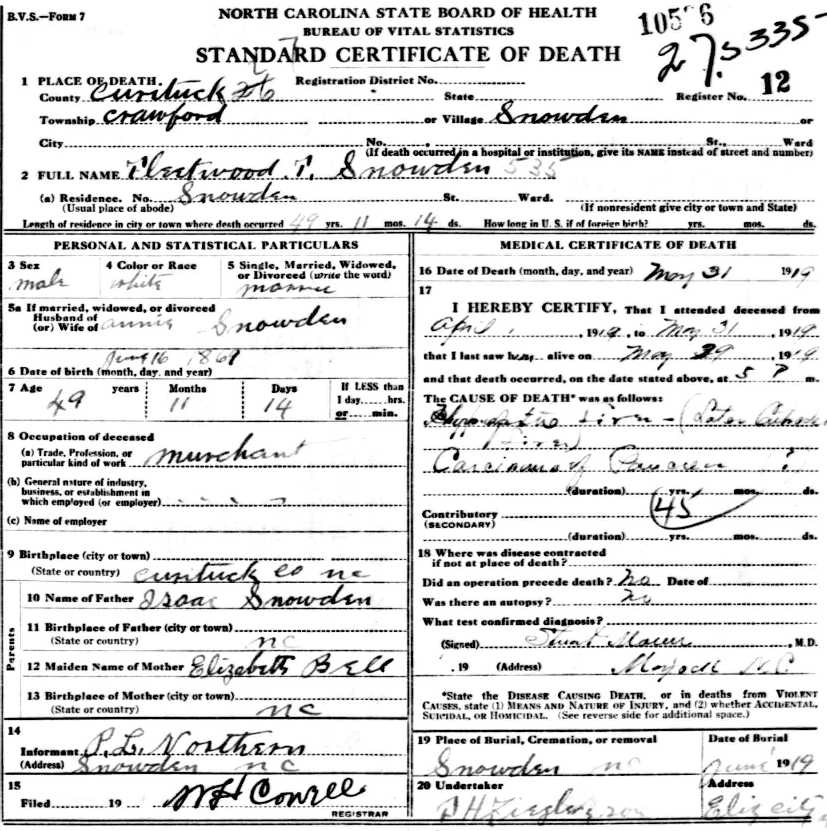 B.V.S.—FORM 7
NORTH CAROLINA STATE BOARD OF HEALTH
BUREAU OF VITAL STATISTICS
STANDARD CERTIFICATE OF DEATH
27.5335
1 PLACE OF DEATH. Registration District No.
County Currituck State Register No. 12
Township Crawford or Village Snowden or
City No. St., Ward
(If death occurred in a hospital or institution, give its NAME instead of street and number)
2 FULL NAME Fleetwood T. Snowden 535
(a) Residence. No. Snowden St. Ward.
(Usual place of abode) (If nonresident give city or town and State)
Length of residence in city or town where death occurred 49 yrs. 11 mos. 14 ds. How long in U. S. if of foreign birth? yrs. mos. ds.
PERSONAL AND STATISTICAL PARTICULARS
3 Sex 4 Color or Race 5 Single, Married, Widowed, or Divorced (write the word)
male white
5a If married, widowed, or divorced
Husband of
(or) Wife of Annie Snowden
6 Date of birth (month, day, and year)
7 Age years Months Days If LESS than
1 day......hrs.
or......min.
49 11 14
8 Occupation of deceased
(a) Trade, Profession, or
particular kind of work murchant
(b) General nature of industry,
business, or establishment in
which employed (or employer)
(c) Name of employer
9 Birthplace (city or town)
(State or country) Currituck Co NC
Parents
10 Name of Father Isaac Snowden
11 Birthplace of Father (city or town)
(State or country) NC
12 Maiden Name of Mother Elizabeth Bell
13 Birthplace of Mother (city or town)
(State or country) NC
14
Informant P. L. Northern
(Address) Snowden NC
15
Filed 19
REGISTRAR
MEDICAL CERTIFICATE OF DEATH
16 Date of Death (month, day, and year) May 31 1919
17
I HEREBY CERTIFY, That I attended deceased from
April 1, 1919, to May 31, 1919
that I last saw him alive on May 29, 1919
and that death occurred, on the date stated above, at 5 P m.
The CAUSE OF DEATH* was as follows:
Carcinoma of Pancreas ?
(duration) yrs. mos. ds.
Contributory 45
(SECONDARY)
(duration) yrs. mos. ds.
18 Where was disease contracted
if not at place of death?
Did an operation precede death? No Date of
Was there an autopsy? no
What test confirmed diagnosis?
(Signed) M.D.
, 19 (Address) Moyock N.C
*State the DISEASE CAUSING DEATH, or in deaths from VIOLENT
CAUSES, state (1) MEANS AND NATURE OF INJURY, and (2) whether ACCIDENTAL,
SUICIDAL, OR HOMICIDAL. (See reverse side for additional space.)
19 Place of Burial, Cremation, or removal Date of Burial
Snowden NC June 1919
20 Undertaker Address
Eliz City